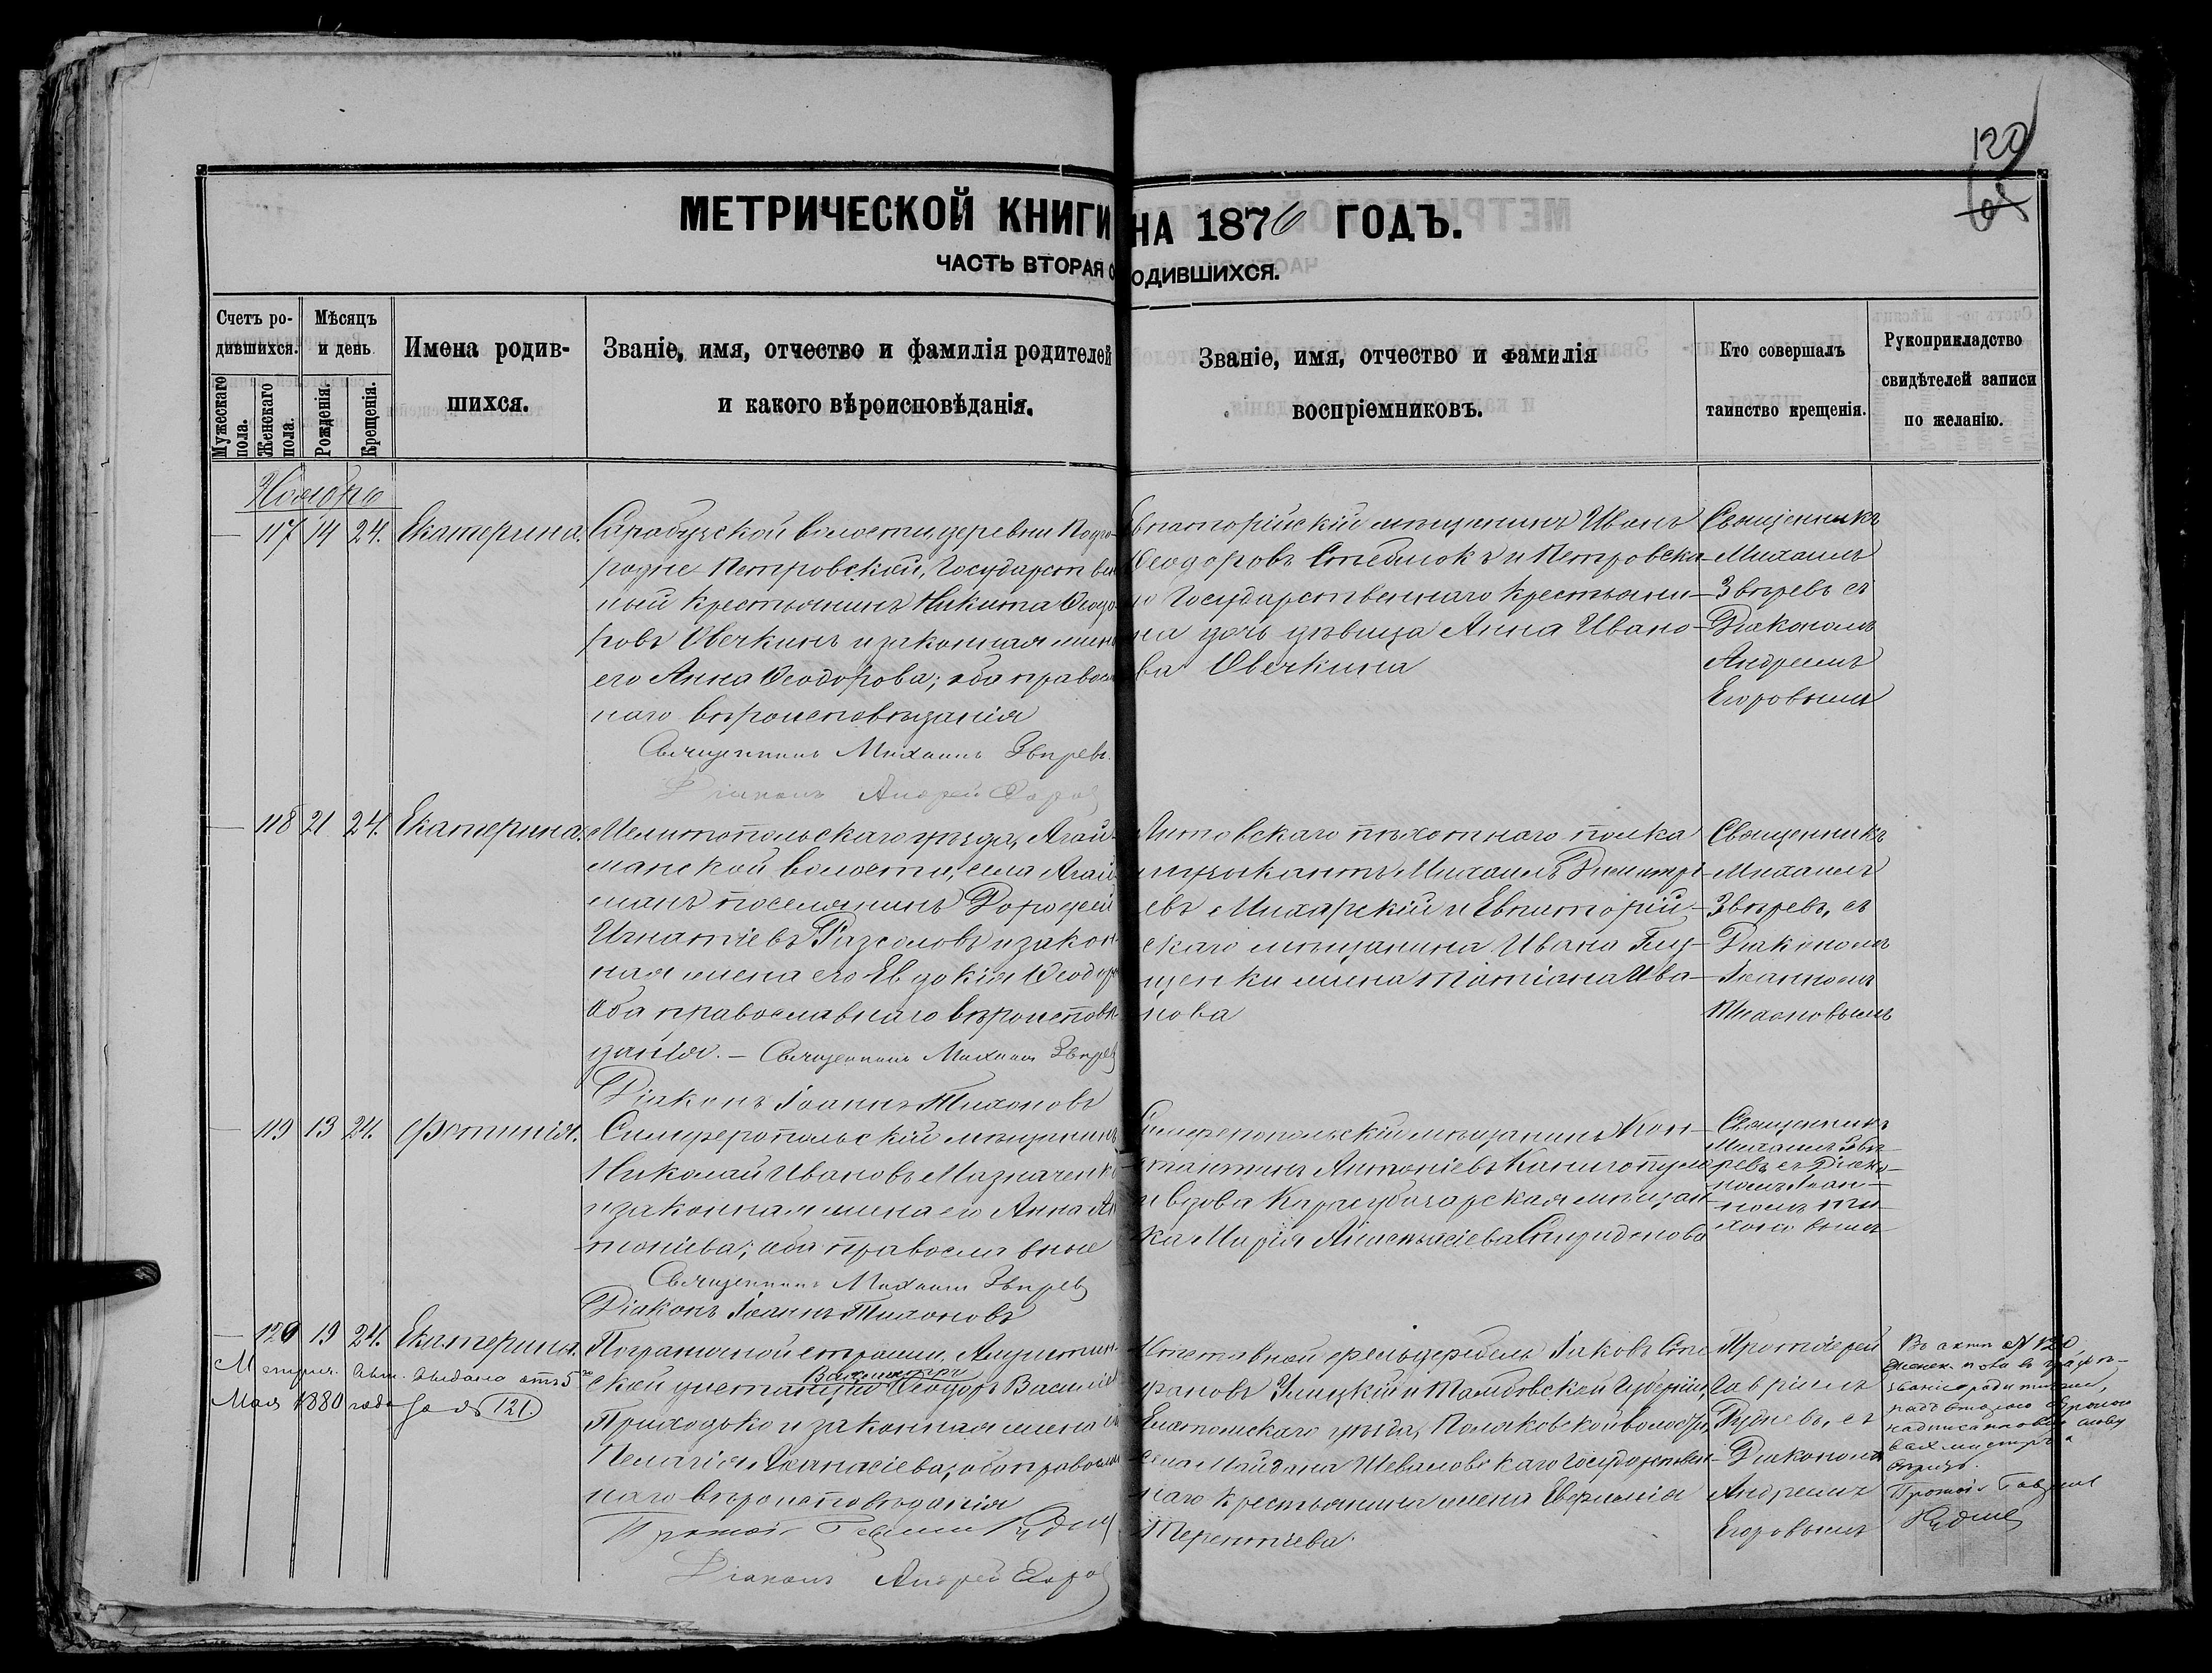 120
МЕТРИЧЕСКОЙ КНИГИ НА 1876 ГОДЪ.
ЧАСТЬ ВТОРАЯ О ОДИВШИХСЯ.
Счетъ ро-
дившихся.
Мужескаго пола.
Женскаго пола.
Мѣсяцъ
и день
Рожденія.
Крещенія.
Имена родив-
шихся.
Званіе, имя, отчество и фамилія родителей
и какого вѣроисповѣданія.
Званіе, имя, отчество и фамилія
воспріемниковъ.
Кто совершалъ
таинство крещенія.
Рукоприкладство
свидѣтелей записи
по желанію.
Ноябрь
— 117 14 24. Екатерина.
Сарабузской волости, деревни Подго-
родне Петровской, Государствен
ный крестьянинъ Никита Ѳеодо-
ровъ Овечкинъ и законная жен
его Анна Ѳеодорова; оба правосл
наго вѣроисповѣданія
Священникъ Михаилъ Звѣревъ.
Діаконъ Андрей
Евпаторійскій мѣщанинъ Иванъ
Ѳеодоровъ и Петровска
го Государственнаго крестьяни-
на дочь дѣвица Анна Ивано-
ва Овечкина
Священникъ
Михаилъ
Звѣревъ съ
Діакономъ
Андреемъ
Егоровымъ
— 118 21 24. Екатерина.
Мелитопольскаго уѣзда, Агай-
манской волости, села Агай
манъ поселянинъ Дорофей
Игнатіевъ и закон
ная жена его Евдокія Ѳеодор
оба православнаго вѣроисповѣ
данія. — Священникъ Михаилъ Звѣрев
Діаконъ Іоаннъ Тихоновъ
Литовскаго пѣхотнаго полка
музыкантъ Михаилъ Димитрі
евъ и Евпаторій-
скаго мѣщанина Ивана
щенки жена Татіана Ива-
нова
Священникъ
Михаилъ
Звѣревъ, съ
Діакономъ
Іоанномъ
Тихоновымъ
— 119 13 24. Фотинія.
Симферопольскій мѣщанинъ
Николай Ивановъ
и законная жена его Анна Ан
тоніева; оба православные
Священникъ Михаилъ Звѣрев
Діаконъ Іоаннъ Тихоновъ
Симферопольскій мѣщанинъ Кон-
стантинъ Антоніевъ
и вдова Карасубазарская мѣщан
ка Марія Спиридонова
Священникъ
Михаилъ Звѣ-
ревъ съ Діако-
номъ Іоан-
номъ Ти-
хоновымъ
— 120 19 24. Екатерина.
Метрич. выдана отъ 5
Мая 1880 года за № 121.
Пограничной стражи,
ской дистанціи Вахмистръ Ѳеодоръ Василіев
Приходько и законная жена
Пелагія Аѳанасіева, оба правосл
наго вѣроисповѣданія
Протоі Гавріилъ Рудн
Діаконъ Андрей
Отставной фельдфебель Іаковъ Сте
фановъ и Тамбовской Губерніи,
Елатомскаго уѣзда, волости,
села Майдана Государствен-
наго крестьянина жена Евфимія
Терентіева.
Протоіерей
Гавріилъ
Рудневъ, съ
Діакономъ
Андреемъ
Егоровымъ
Въ актѣ № 120
женск. пола въ графѣ
званіе родителей,
надъ второю строкою
надписанному слову
вахмистръ
вѣрить.
Протоі Гавріилъ
Руднев